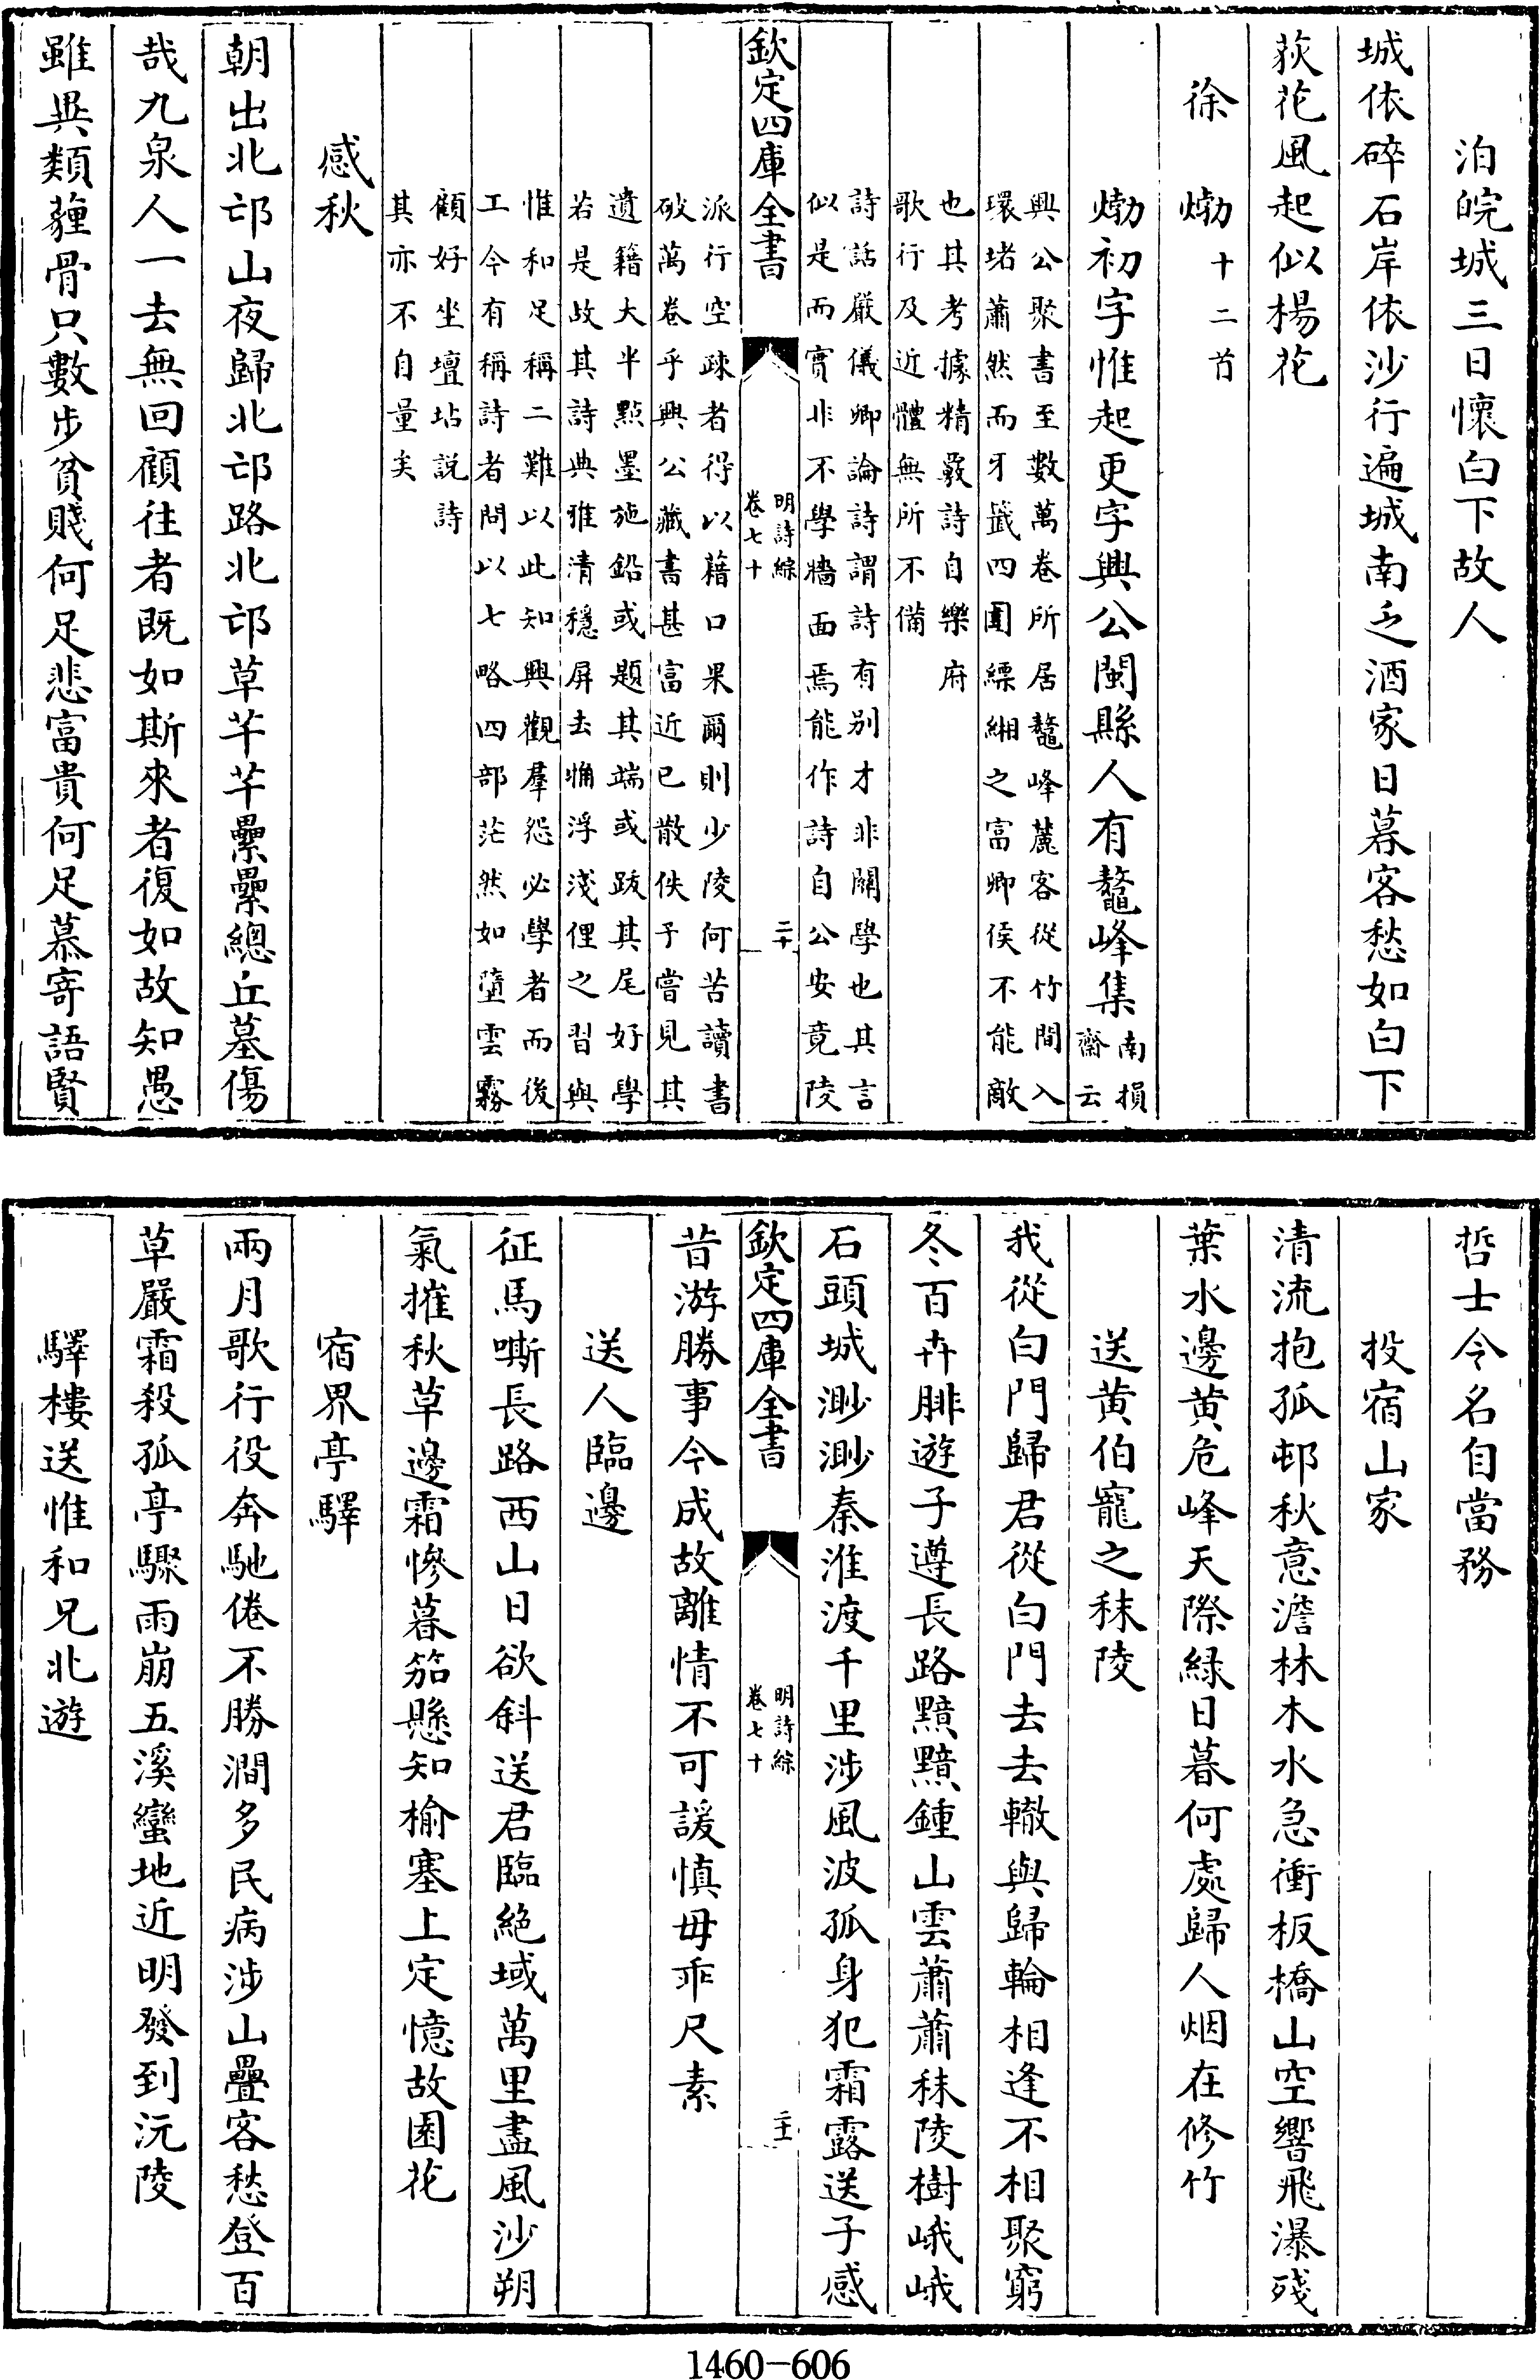 泊皖城三日懷白下故人
城依碎石岸依沙行遍城南乏酒家日暮客愁如白下
荻花風起似楊花
徐𤊹十二首
𤊹初字惟起更字興公閩縣人有鼇峰集南損
齋云
興公聚書至數萬卷所居鼇峰麓客從竹間入
環堵蕭然而牙籤四圍縹緗之富卿侯不能敵
也其考據精覈詩自樂府
歌行及近體無所不備
詩話嚴儀卿論詩謂詩有别才非關學也其言
似是而實非不學牆面焉能作詩自公安竟陵
欽定四庫全書
明詩綜
卷七十
二十
派行空疎者得以藉口果爾則少陵何苦讀書
破萬卷乎興公藏書甚富近已散佚予嘗見其
遺籍大半㸃墨施鉛或題其端或跋其尾好學
若是故其詩典雅清穩屏去觕浮淺俚之習與
惟和足稱二難以此知興觀羣怨必學者而後
工今有稱詩者問以七略四部茫然如墮雲霧
顧好坐壇坫説詩
其亦不自量矣
感秋
朝出北邙山夜歸北邙路北邙草芊芊纍纍總丘墓傷
哉九泉人一去無回顧往者既如斯來者復如故知愚
雖異類薶骨只數步貧賤何足悲富貴何足慕寄語賢
哲士令名自當務
投宿山家
清流抱孤邨秋意澹林木水急衝板橋山空響飛瀑殘
葉水邊黄危峰天際緑日暮何處歸人烟在修竹
送黄伯寵之秣陵
我從白門歸君從白門去去轍與歸輪相逢不相聚窮
冬百卉腓遊子遵長路黯黯鍾山雲蕭蕭秣陵樹峨峨
石頭城渺渺秦淮渡千里涉風波孤身犯霜露送子感
欽定四庫全書
明詩綜
卷七十
二十一
昔游勝事今成故離情不可諼慎毋乖尺素
送人臨邊
征馬嘶長路西山日欲斜送君臨絶域萬里盡風沙朔
氣摧秋草邊霜慘暮笳懸知榆塞上定憶故園花
宿界亭驛
兩月歌行役奔馳倦不勝澗多民病涉山疊客愁登百
草嚴霜殺孤亭驟雨崩五溪蠻地近明發到沅陵
驛樓送惟和兄北遊
1460-606